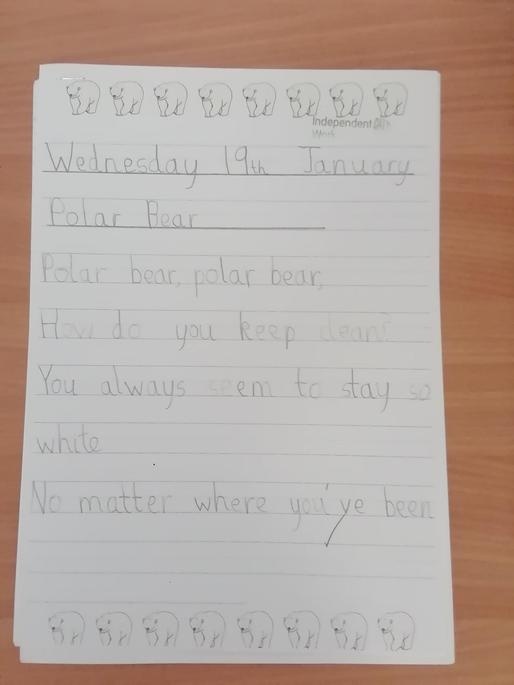 Independent
Work
Wednesday 19th January
Polar Bear
Polar bear, polar bear,
How do you keep clean?
You always seem to stay so
white
No matter where you've been